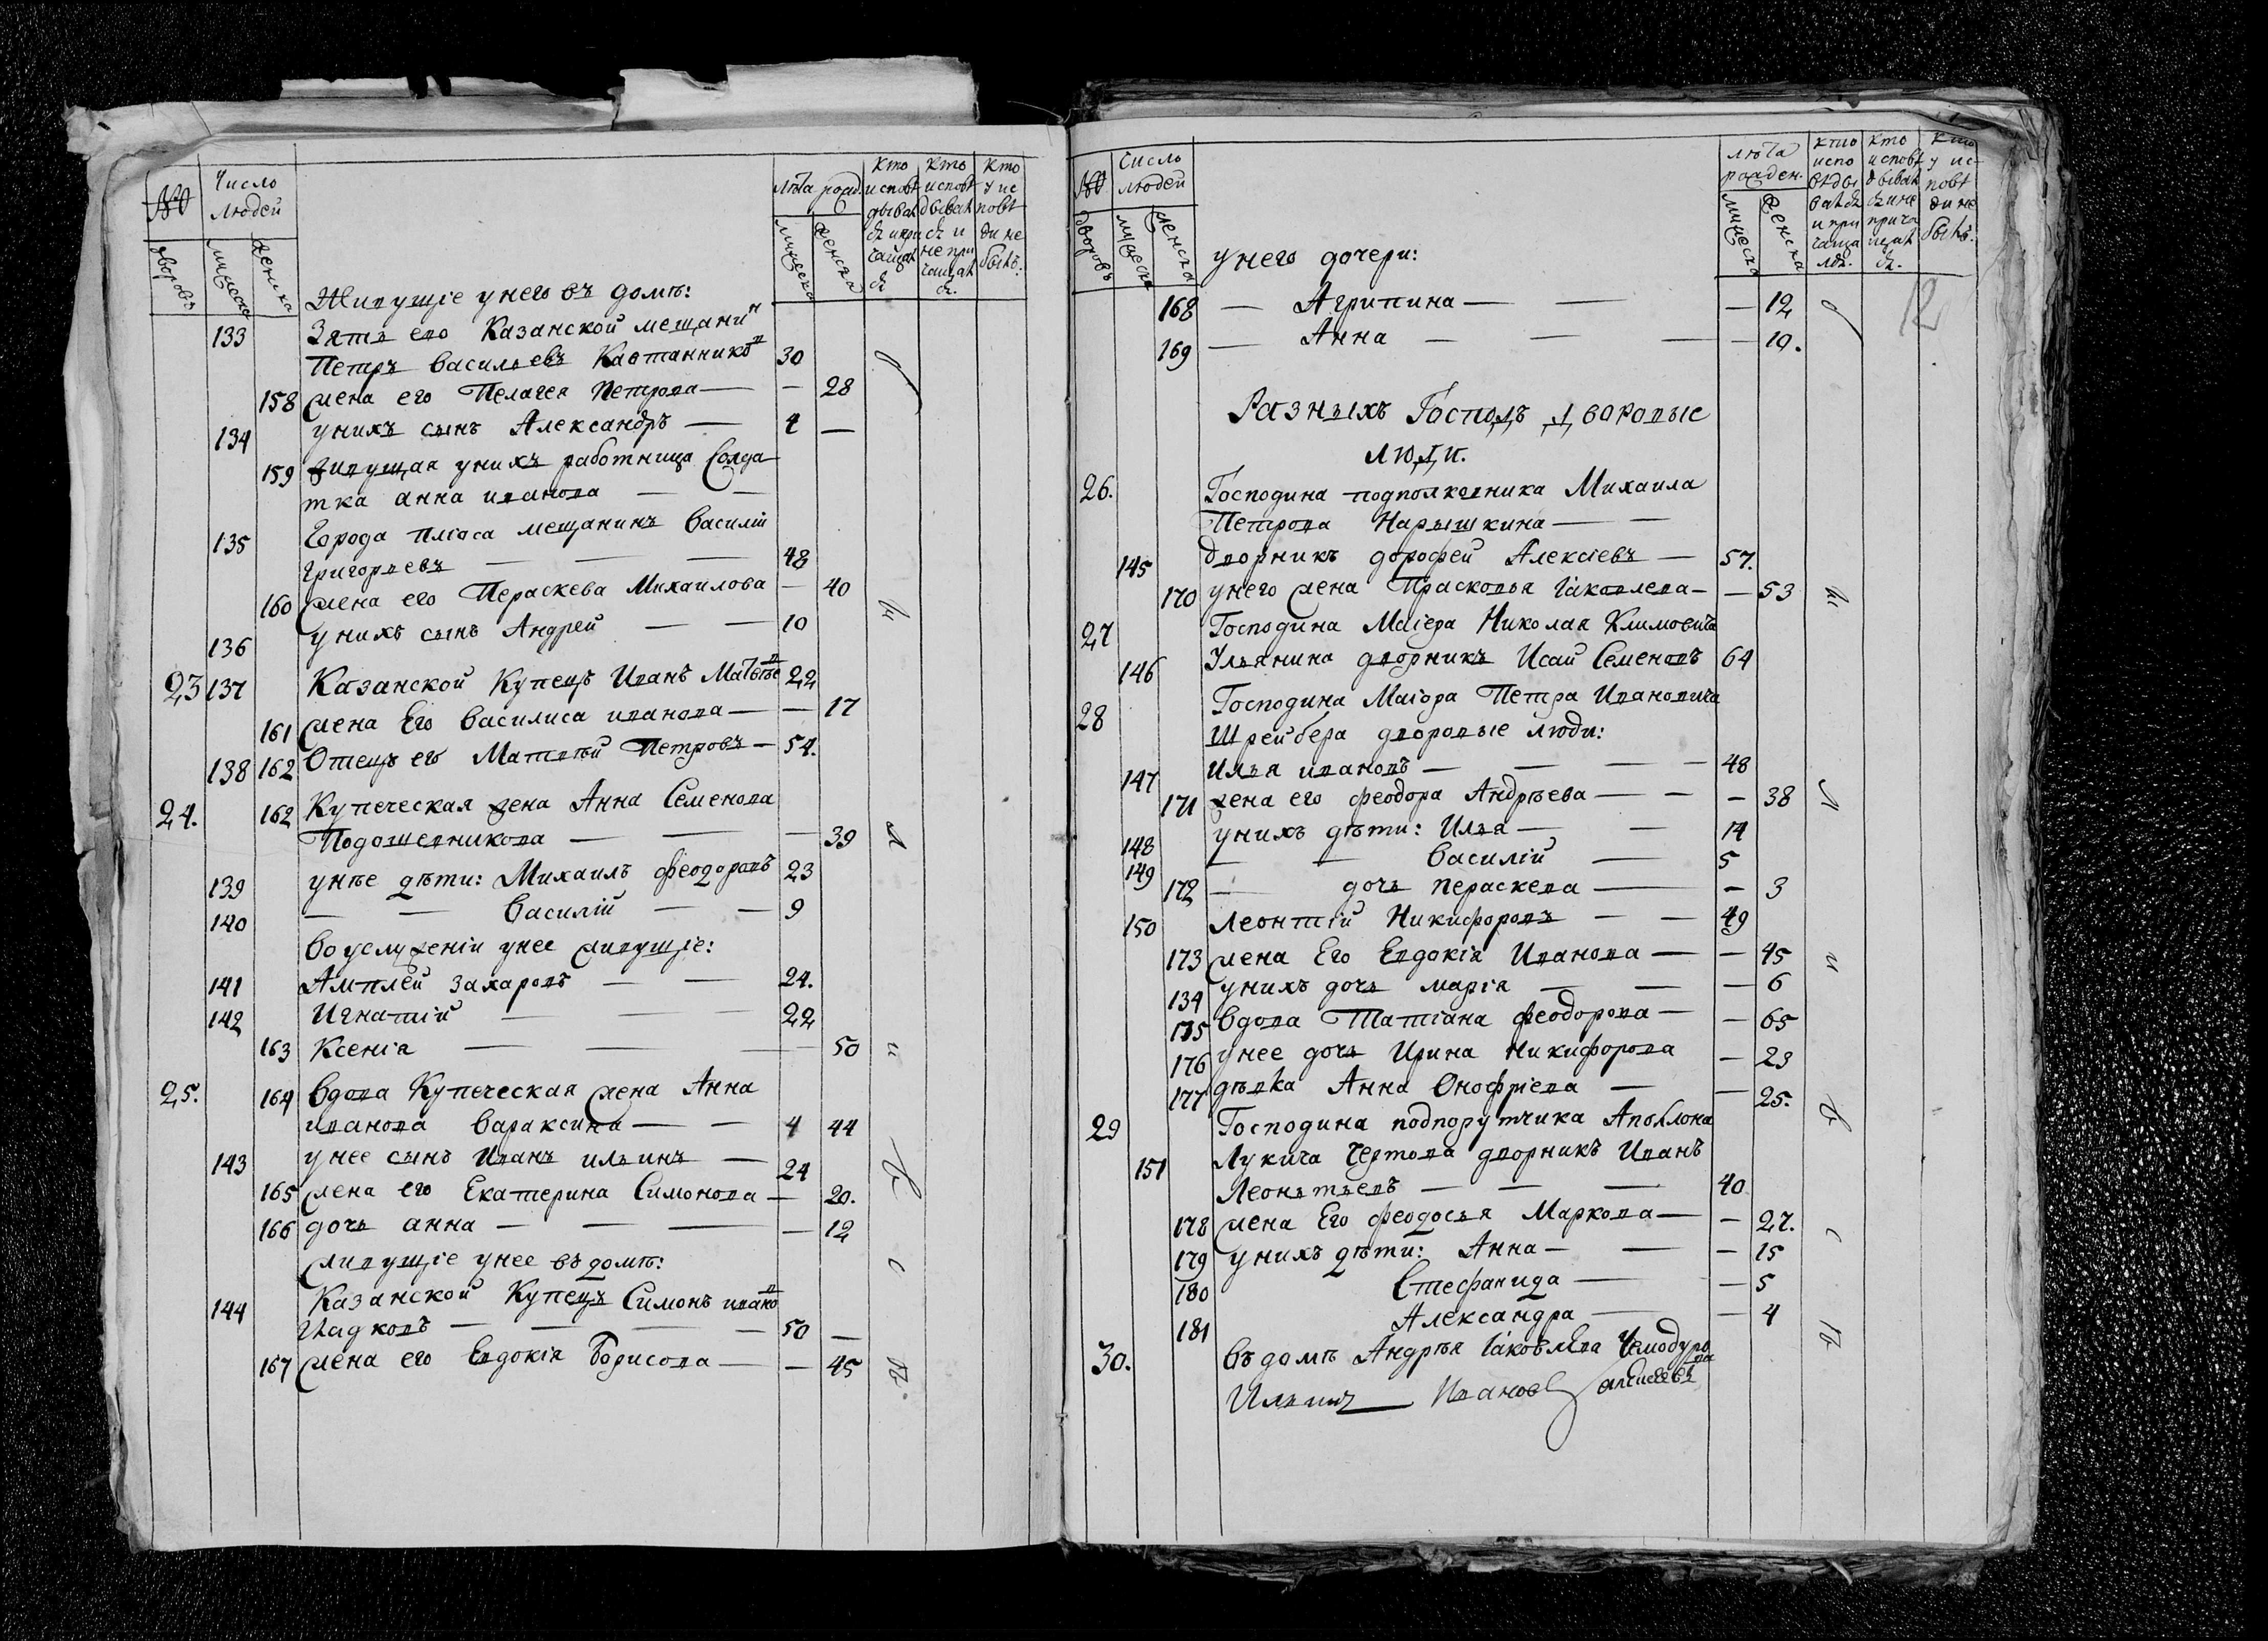 № Число людей лѣта рожд. кто исповѣдывалсѧ и причащалсѧ кто исповѣдывалсѧ и не причащалсѧ кто у исповѣди не былъ:
дворовъ мужеска женска мужеска женска
Живущіе у него въ домѣ:
133 Зять его Казанской мещанинъ
Петръ Васильевъ Кафтанников 30
158 жена его Пелагея Петрова — — 28
134 у нихъ сынъ Александръ — 4 —
159 живущая у нихъ работница Солда
тка анна иванова — —
135 Города плюса мещанинъ Василій
Григорьевъ — — 48
160 жена его Параскева Михаилова — 40
136 у нихъ сынъ Андрей — — 10
23 137 Казанской Купецъ Иванъ Матвѣев 22
161 жена Его Василиса иванова — — 17
138 162 Отецъ его Матвѣй Петровъ — 54.
24. 162 Купеческая жена Анна Семенова
Подошевникова — — — 39
139 у нѣе дѣти: Михаилъ Феодоровъ 23
140 — — Василій — — 9
Во услуженіи у нее живущіе:
141 Амплей Захаровъ — — 24.
142 Игнатій — — — 22
163 Ксенія — — — 50
25. 164 Вдова Купеческая жена Анна
иванова Вараксина — — 4 44
143 у нее сынъ Иванъ ильинъ — 24
165 жена его Екатерина Симонова — 20.
166 дочь анна — — — — 12
живущіе у нее въ домѣ:
144 Казанской Купецъ Симонъ ивано в
Шадковъ — — — — 50 —
167 жена его Евдокія Борисова — — 45
№ Число людей лѣта рожден. кто исповѣдывалсѧ и причащалсѧ. кто исповѣдывалсѧ и не причащалсѧ. кто у исповѣди не былъ.
дворовъ мужеска женска мужеска женска
у него дочери:
12
168 — Агрипина — — — 12
169 — Анна — — — — 10.
Разныхъ Господъ дворовые
люди.
26. Господина подполковника Михаила
Петрова Нарышкина — —
145 дворникъ дорофей Алексіевъ — 57.
170 у него жена Прасковья Іаковлева — — 53
27 Господина Маіора Николая Климовича
146 Ульянина дворникъ Исай Семеновъ 64
28 Господина Маіора Петра Ивановича
Шрейбера дворовые люди:
147 Илья ивановъ — — — — 48
171 жена его феодора Андрѣева — — — 38
148 у нихъ дѣти: Илья — — 14
149 — — Василій — 5
172 — дочь пераскева — — 3
150 Леонтій Никифоровъ — — 49
173 жена Его Евдокія Иванова — — 45
134 у нихъ дочь марія — — — 6
175 вдова Татіана Феодорова — — 65
176 у нее дочь Ирина Никифорова — 23
177 дѣвка Анна Онофріева — — 25.
29 Господина подпорутчика Аполлона
151 Лукича Чертова дворникъ Иванъ
Леонтьевъ — — — 40
178 жена Его феодосья Маркова — — 27.
179 у нихъ дѣти: Анна — — — 15
180 Стефанида — — 5
181 Александра — — 4
30. Въ домѣ Андрѣя Іаковлева Чемодуро
ва
Ильинъ Иванов